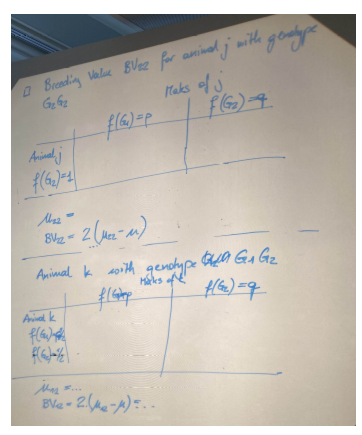 □ Breeding Value BV₂₂ for animal j with genotype
G₂G₂
Maks of j
f(G₁)=p f(G₂)=q
Animal j
f(G₂)=1
μ₂₂ =
BV₂₂ = 2(μ₂₂-μ)
Animal k with genotype G₁G₂
Maks of k
f(G₁)=p f(G₂)=q
Animal k
f(G₁)=½
f(G₂)=½
μ₁₂ = ...
BV₁₂ = 2.(μ₁₂-μ) = ...